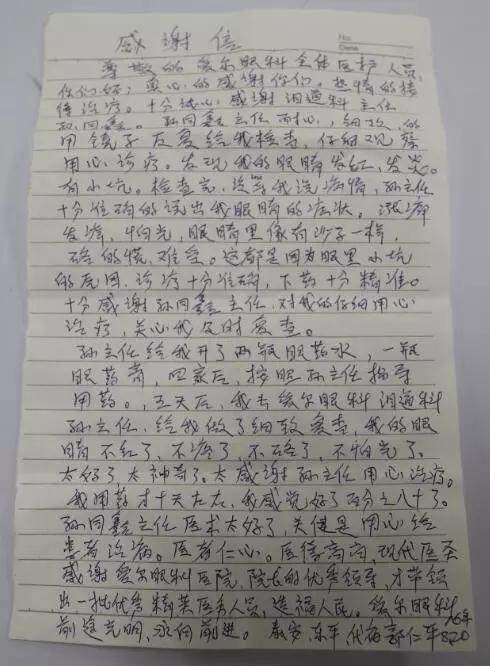 感谢信
No.
Date
尊敬的爱尔眼科全体医护人员,
你们好; 衷心的感谢你们。热情的接
待治疗。十分诚心感谢泪道科主任
孙同鑫。孙同鑫主任耐心,细致,的
用镜子反复给我检查,仔细观察
用心诊疗。发现我的眼睛发红,发炎。
有小坑。检查完,没等我说病情,孙主任
十分准确的说出我眼睛的症状。
发痒,怕光,眼睛里像有沙子一样,
硌的慌,难受。这都是因为眼里小坑
的原因,诊疗十分准确,下药十分精准。
十分感谢孙同鑫主任,对我的仔细用心
治疗,关心我及时复查。
孙主任给我开了两瓶眼药水,一瓶
眼药膏,回家后,按照孙主任指导
用药。五天后,我去爱尔眼科泪道科
孙主任,给我做了细致复查,我的眼
睛不红了,不疼了,不硌了,不怕光了。
太好了太神奇了。太感谢孙主任用心治疗。
我用药才十天左右,我感觉好了百分之八十了。
孙同鑫主任医术太好了,关键是用心给
患者治病。医者仁心。医德高尚,现代医圣
感谢爱尔眼科医院,院长的优秀领导,才带领
出一批优秀精英医务人员,造福人民。爱尔眼科
前途光明,永向前进。 泰安,东平,代庙郭仁军
8.20